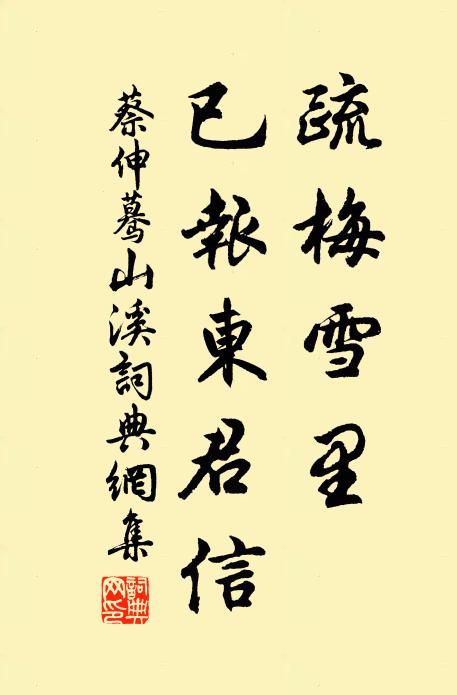 疏梅雪里
已報東君信
蔡伸驀山溪詞典網集
詞典網印